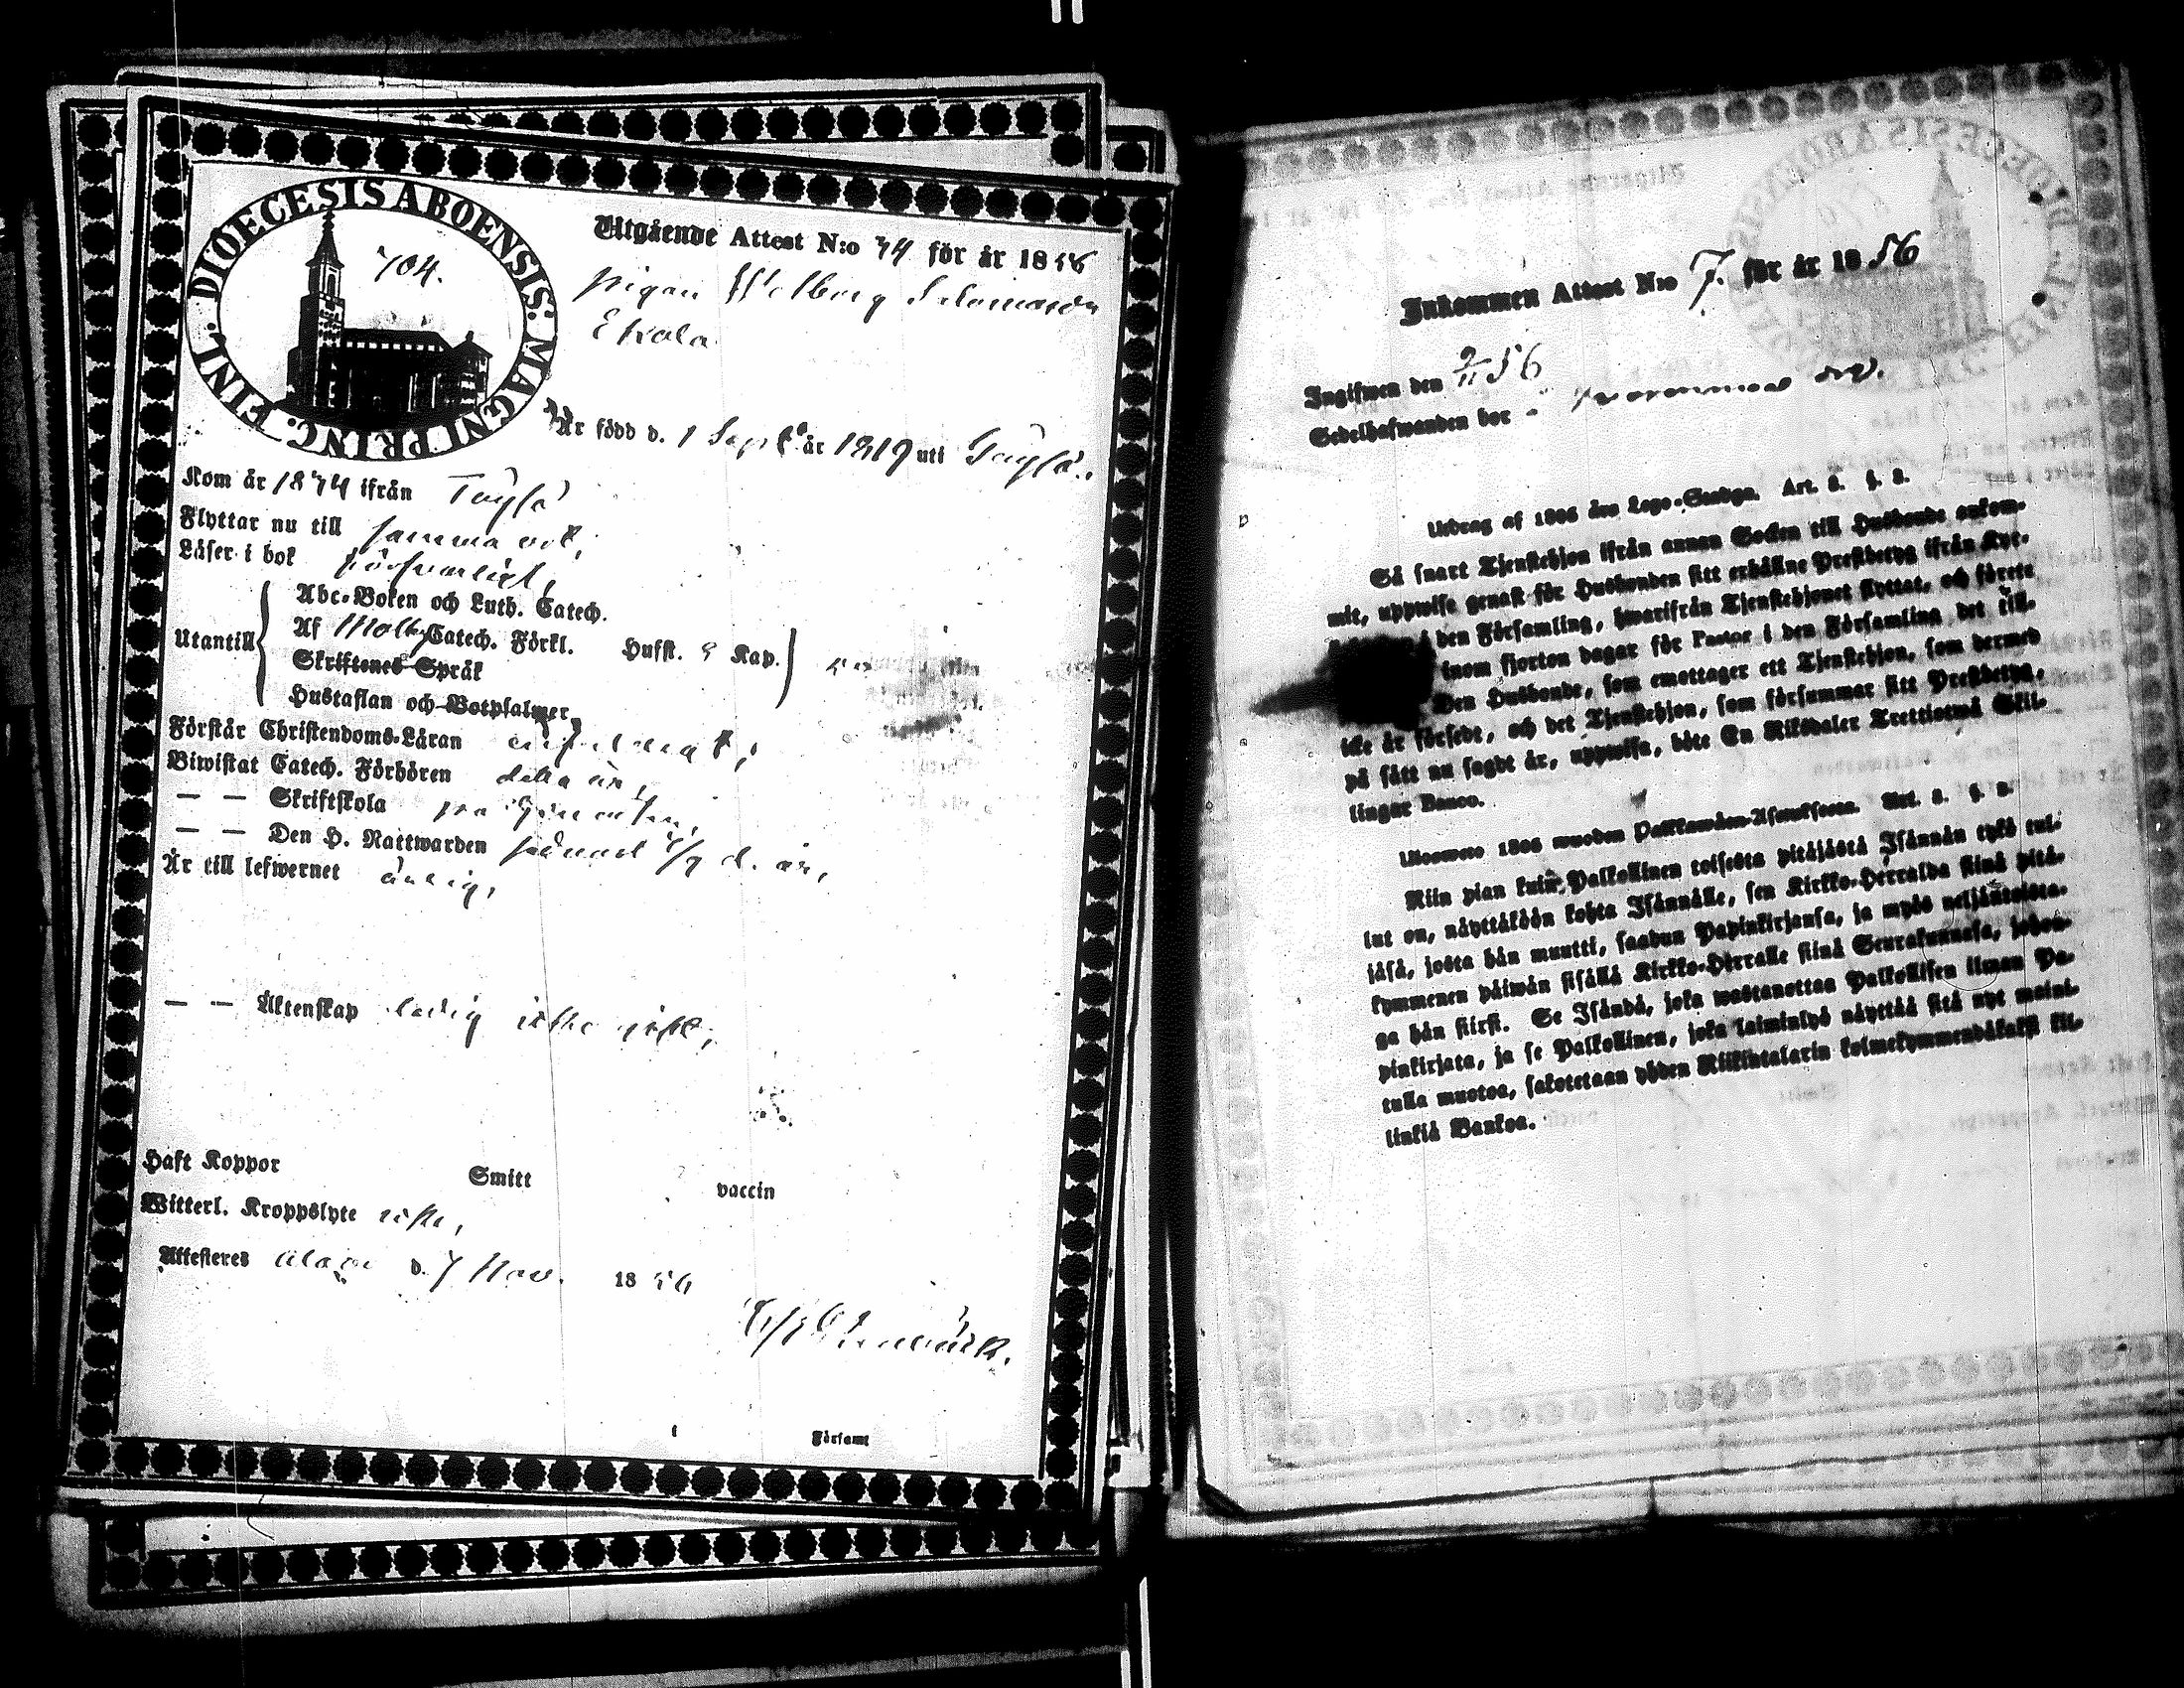 DIOECESIS ABOENSIS. MAGNI PRINC. FINL.
704.
Utgående Attest N:o 74 för år 1856
pigan Walborg Salomonsdr
Ekola
Är född d. 1 Sept. år 1819 uti Töysä.
Kom år 18 ifrån Töysä
Flyttar nu till samma ort,
Läser i bok försvarligt,
Utantill
Abc-Boken och Luth. Catech.
Af Catech. Förkl. Husst. Kap.
Skriftenes Språk
Hustaflan och Botpsalmer
Förstår Christendoms-Läran enfaldigt,
Biwistat Catech. Förhören detta år,
— — Skriftskola
— — Den H. Nattwarden sednast d. år,
Är till lefwernet ärlig,
— — Äktenskap ledig icke gift,
Haft Koppor Smitt vaccin
Witterl. Kroppslyte icke,
Attesteres Alavo d. 7 Nov. 1856
Församl
Inkommen Attest N:o 7. för år 1856
Ingifwen den 9/11 56
Sedelhafwanden bor
Utdrag af 1805 års Lego-Stadga. Art. 3. §. 3.
Så snart Tjenstehjon ifrån annan Socken till Husbonde ankom-
mit, uppwise genast för Husbonden sitt erhållne Prestbetyg ifrån Kyr-
den Församling, hwarifrån Tjenstehjonet flyttat, och förete
inom fjorton dagar för Pastor i den Församling det till-
Den Husbonde, som emottager ett Tjenstehjon, som dermed
icke är försedt, och det Tjenstehjon, som försummar sitt Prestbetyg,
på sätt nu sagdt är, uppwisa, böte En Riksdaler Trettiotwå Skil-
lingar Banco.
Uloswere 1805 wuoden Palkkawäen-Asetuksessa. Art. 3. §. 3.
Niin pian kuin Palkollinen toisesta pitäjästä Isännän tykö tul-
lut on, näyttäköön kohta Isännälle, sen Kirkko-Herralda siinä pitä-
jäsä, josta hän muutti, saadun Papinkirjansa, ja myös neljäntoista-
kymmenen päiwän sisällä Kirkko-Herralle siinä Seurakunnasa, johon-
ga hän siirsi. Se Isändä, joka wastanottaa Palkollisen ilman Pa-
pinkirjata, ja se Palkollinen, joka laiminlyö näyttää sitä nyt maini-
tulla muotoa, sakotetaan yhden Riikintalarin kolmekymmendäkaksi kil-
linkiä Bankoa.